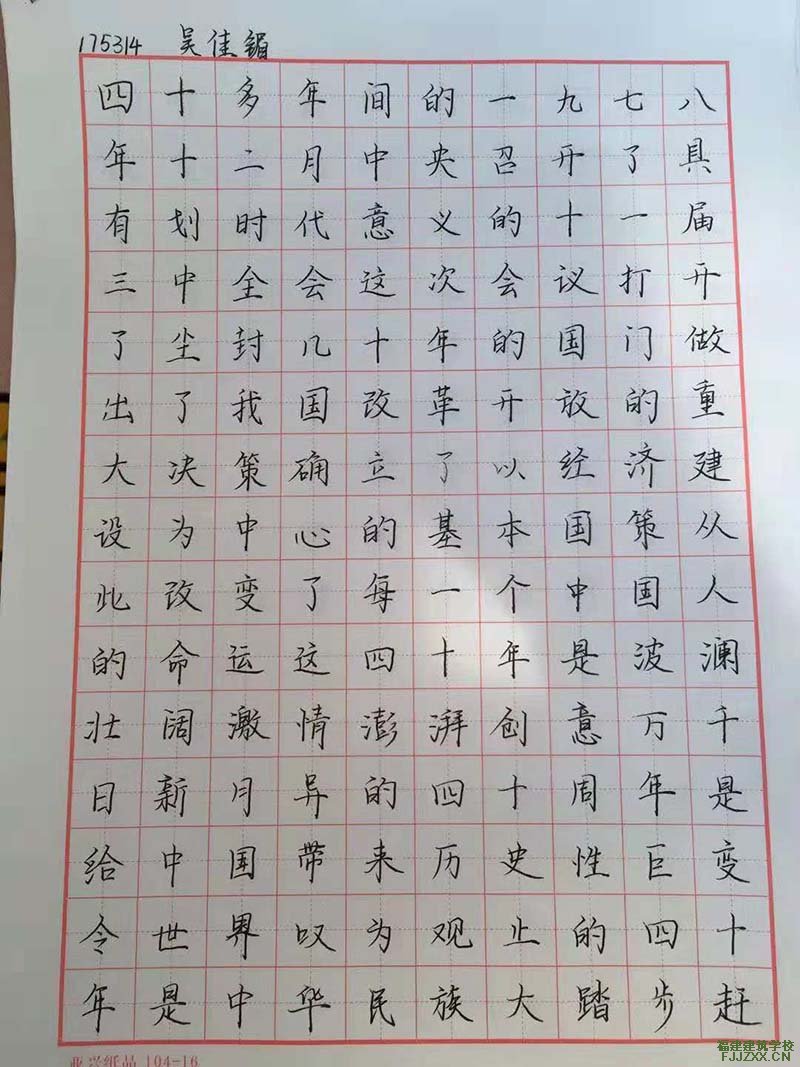 175314 吴佳鎇
四十多年间的一九七八
年十二月中央召开了具
有划时代意义的十一届
三中全会这次会议打开
了尘封几十年的国门做
出了我国改革开放的重
大决策确立了以经济建
设为中心的基本国策从
此改变了每一个中国人
的命运这四十年是波澜
壮阔激情澎湃创意万千
日新月异的四十周年是
给中国带来历史性巨变
令世界叹为观止的四十
年是中华民族大踏步赶
亚兴纸品 104-16
福建建筑学校
FJJZXX.CN